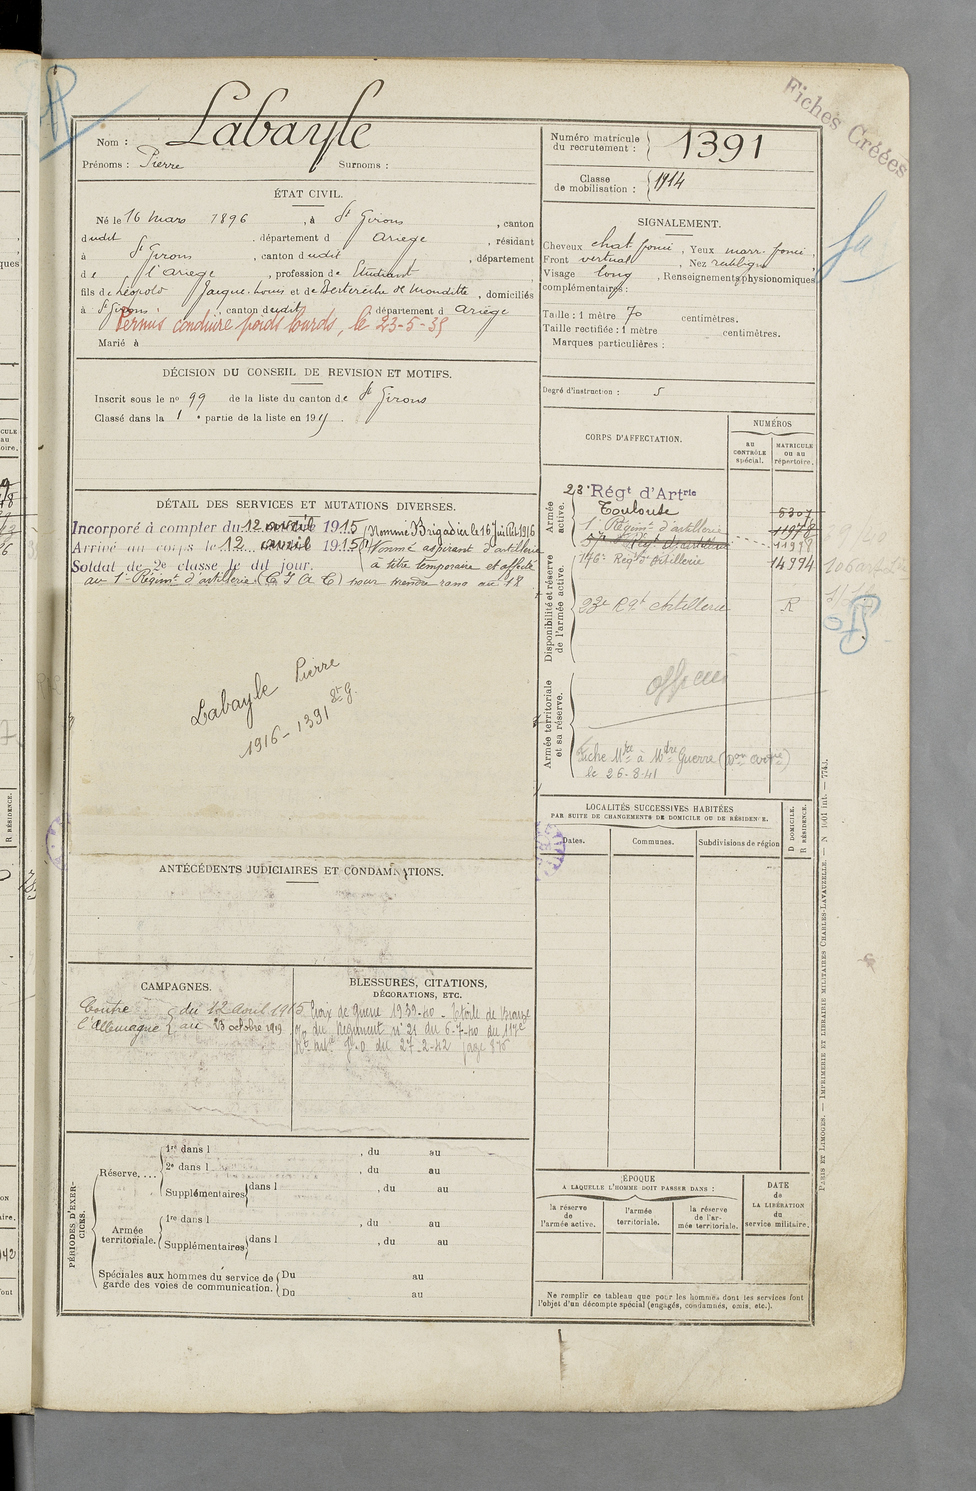 Fiches Créées
Nom : Labayle
Prénoms : Pierre Surnoms :
Numéro matricule du recrutement : 1391
Classe de mobilisation : 1914
ÉTAT CIVIL.
Né le 16 mars 1896, à St Girons, canton
dudit, département d Ariège, résidant
à St Girons, canton dudit, département
de l'Ariège, profession de Étudiant
fils de Léopold Jacques Louis et de Berterèche de Monditte, domiciliés
à St Girons, canton dudit, département d Ariège
Permis conduire poids lourds, le 23-5-39
Marié à
SIGNALEMENT.
Cheveux chat. foncé, Yeux marr. foncé,
Front vertical, Nez rectiligne
Visage long, Renseignements physionomiques
complémentaires :
Taille : 1 mètre 70 centimètres.
Taille rectifiée : 1 mètre centimètres.
Marques particulières :
DÉCISION DU CONSEIL DE REVISION ET MOTIFS.
Inscrit sous le no 99 de la liste du canton de St Girons
Classé dans la 1e partie de la liste en 191
Degré d'instruction : 5
CORPS D'AFFECTATION.
NUMÉROS
AU CONTRÔLE spécial.
MATRICULE ou au répertoire.
Armée active.
23e Régt d'Artrie
Toulouse 6307
1er Régimt d'artillerie 11978
11978
176e Régt d'Artillerie 14994
Disponibilité et réserve de l'armée active.
23e Rgt Artillerie R
Armée territoriale et sa réserve.
officier
le 26-8-41
DÉTAIL DES SERVICES ET MUTATIONS DIVERSES.
Incorporé à compter du 12 avril 1915 Nommé Brigadier le 16 Juillet 1916
Arrivé au corps le 12 avril 1915 Nommé aspirant d'artillerie
Soldat de 2e classe le dit jour. à titre temporaire et affecté
au 1er Régimt d'artillerie pour prendre rang au 18
Labayle Pierre
1916 - 1391 St G.
LOCALITÉS SUCCESSIVES HABITÉES
PAR SUITE DE CHANGEMENTS DE DOMICILE OU DE RÉSIDENCE.
Dates. Communes. Subdivisions de région
D DOMICILE.
R RÉSIDENCE.
ANTÉCÉDENTS JUDICIAIRES ET CONDAMNATIONS.
CAMPAGNES.
Contre l'Allemagne
du 12 Avril 1915
au 23 octobre 1919
BLESSURES, CITATIONS,
DÉCORATIONS, ETC.
Croix de guerre 1939-40 - Etoile de Bronze
O/ du Régiment n° 21 du 6-7-40 du 117e
Rt Artie J.O. du 27-2-42 page 876
PÉRIODES D'EXERCICES.
Réserve....
1re dans l , du au
2e dans l , du au
Supplémentaires dans l , du au
Armée territoriale.
1re dans l , du au
Supplémentaires dans l , du au
Spéciales aux hommes du service de garde des voies de communication.
Du au
Du au
ÉPOQUE
A LAQUELLE L'HOMME DOIT PASSER DANS :
la réserve de l'armée active.
l'armée territoriale.
la réserve de l'armée territoriale.
DATE DE LA LIBÉRATION du service militaire.
Ne remplir ce tableau que pour les hommes dont les services font
l'objet d'un décompte spécial (engagés, condamnés, omis, etc.).
PARIS ET LIMOGES. — IMPRIMERIE ET LIBRAIRIE MILITAIRES CHARLES-LAVAUZELLE. —